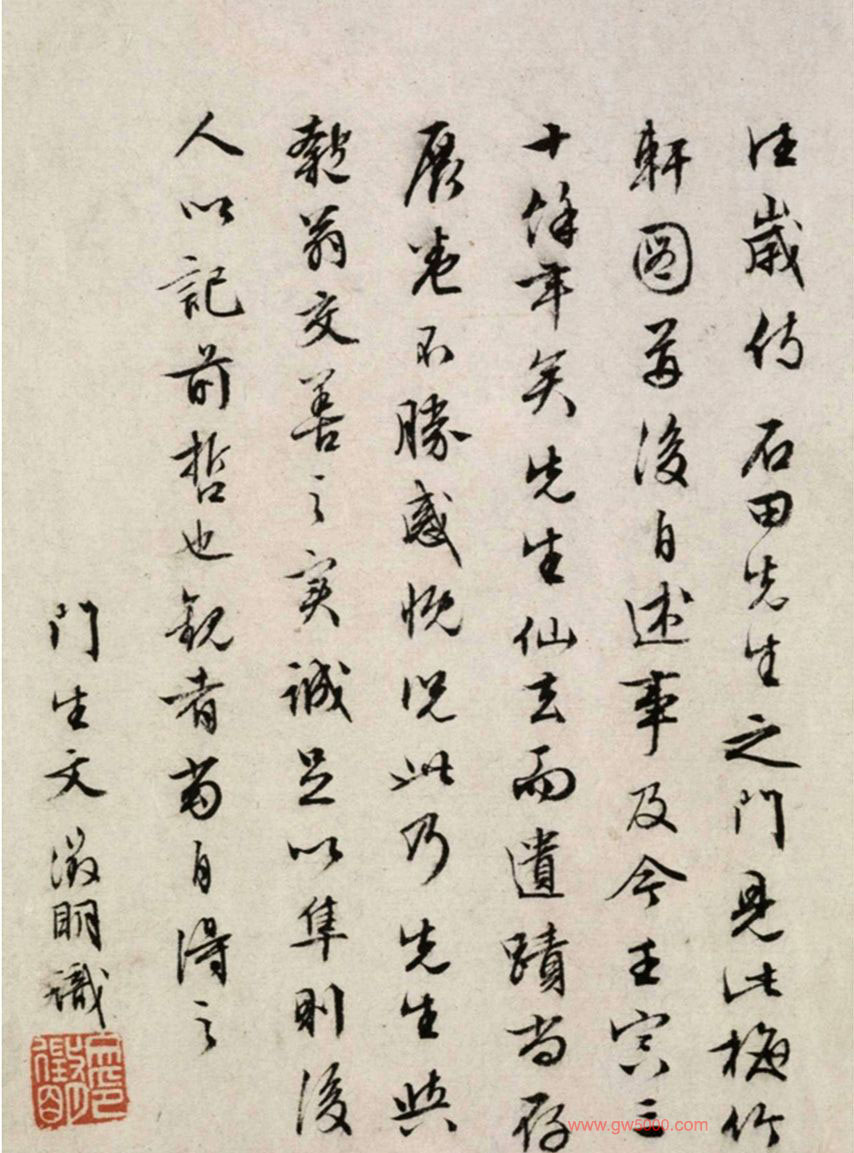 往歲侍 石田先生之門見此梅竹
軒圖後自述事及今壬寅三
十餘年矣先生仙去而遺蹟尚存
展卷不勝感慨況此乃先生與
匏翁交善之實誠足以隼則後
人以記前哲也觀者當自得之
門生文徵明識
www.gw5000.com